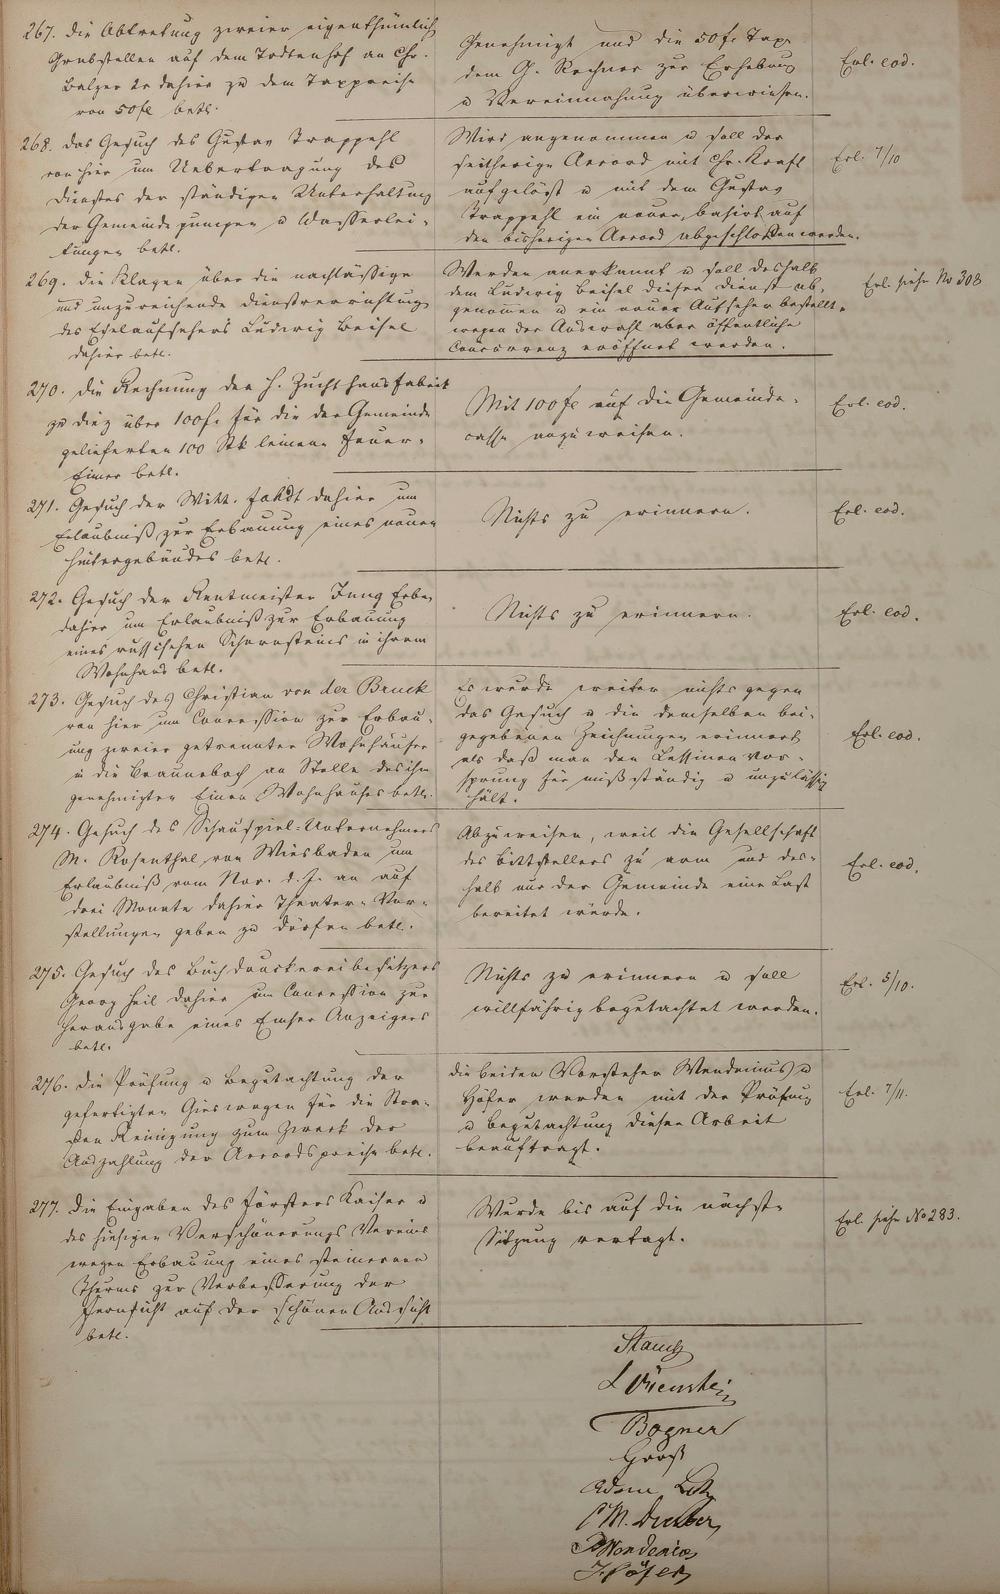 267. die Abtretung zweier eigenthümlich
Grabstellen auf dem Todtenhof an Chr.
Balzer 2r dahier zu dem Taxpreise
von 50 fl betr.
Genehmigt und die 50 fl. Taxe
dem G. Rechner zur Erhebung
u Vereinnahmung überwiesen.
Erl. eod.
268. das Gesuch des Gustav Trappehl
von hier um Uebertragung des
Dienstes der ständigen Unterhaltung
der Gemeindepumpen u Wasserlei-
tungen betr.
Wird angenommen u soll der
seitherige Accord mit Chr. Kraft
aufgelöst u mit dem Gustav
Trappehl ein neuer, basirt auf
den bisherigen Accord abgeschlossen werden.
Erl. 7/10
269. die Klagen über die nachlässige
und unzureichende Dienstverrichtung
des Eselaufsehers Ludwig Beisel
dahier betr.
Werden anerkannt u soll deshalb
dem Ludwig Beisel dieser Dienst ab-
genomen u ein neuer Aufseher bestellt,
wegen der Auswahl aber öffentliche
Concurrenz eröffnet werden.
Erl. siehe No 308
270. die Rechnung der H. Zuchthausfabrik
zu Diez über 100 fl. für die der Gemeinde
gelieferten 100 Stk leinene Feuer-
Eimer betr.
Mit 100 fl auf die Gemeinde-
casse anzuweisen.
Erl. eod.
271. Gesuch der Witt. Fahdt dahier um
Erlaubniß zur Erbauung eines neuen
Hintergebäudes betr.
Nichts zu erinnern.
Erl. eod.
272. Gesuch der Rentmeister Jung Erben
dahier um Erlaubniß zur Erbauung
eines russischen Schornsteins in ihrem
Wohnhaus betr.
Nichts zu erinnern.
Erl. eod.
273. Gesuch des Christian von der Bruck
von hier um Concession zur Erbau-
ung zweier getrennter Wohnhäuser
in die Braunebach an Stelle des ihm
genehmigten Einen Wohnhauses betr.
Es wurde weiter nichts gegen
das Gesuch u die demselben bei-
gegebenen Zeichnungen erinnert
als daß man den Vor-
sprung für mißständig u unzulässig
hält.
Erl. eod.
274. Gesuch des Schauspiel-Unternehmers
M. Rosenthal von Wiesbaden um
Erlaubniß vom Nov. d. J. an auf
drei Monate dahier Theater-Vor-
stellungen geben zu dürfen betr.
Abzuweisen, weil die Gesellschaft
des Bittstellers zu arm und des-
halb nur der Gemeinde eine Last
bereitet würde.
Erl. eod.
275. Gesuch des Buchdruckereibesitzers
Georg Heil dahier um Concession zur
Herausgabe eines Emser Anzeigers
betr.
Nichts zu erinnern u soll
willfährig begutachtet werden.
Erl. 5/10.
276. Die Prüfung u Begutachtung der
gefertigten Gieswagen für die Stra-
ßen Reinigung zum Zweck der
Auszahlung der Accordspreise betr.
die beiden Vorsteher Wendenius u
Höfer werden mit der Prüfung
u Begutachtung dieser Arbeit
beauftragt.
Erl. 7/11.
277. die Eingaben des Försters Kaiser u
des hiesigen Verschönerungs Vereins
wegen Erbauung eines steinernen
Thurms zur Verbesserung der
Fernsicht auf der schönen Aussicht
betr.
Wurde bis auf die nächste
Sitzung vertagt.
Erl. siehe No 283.
Bogner
Groß
Adam
P. Wendenius
J. Höfer